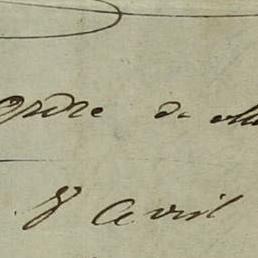 Ordre de
8 avril